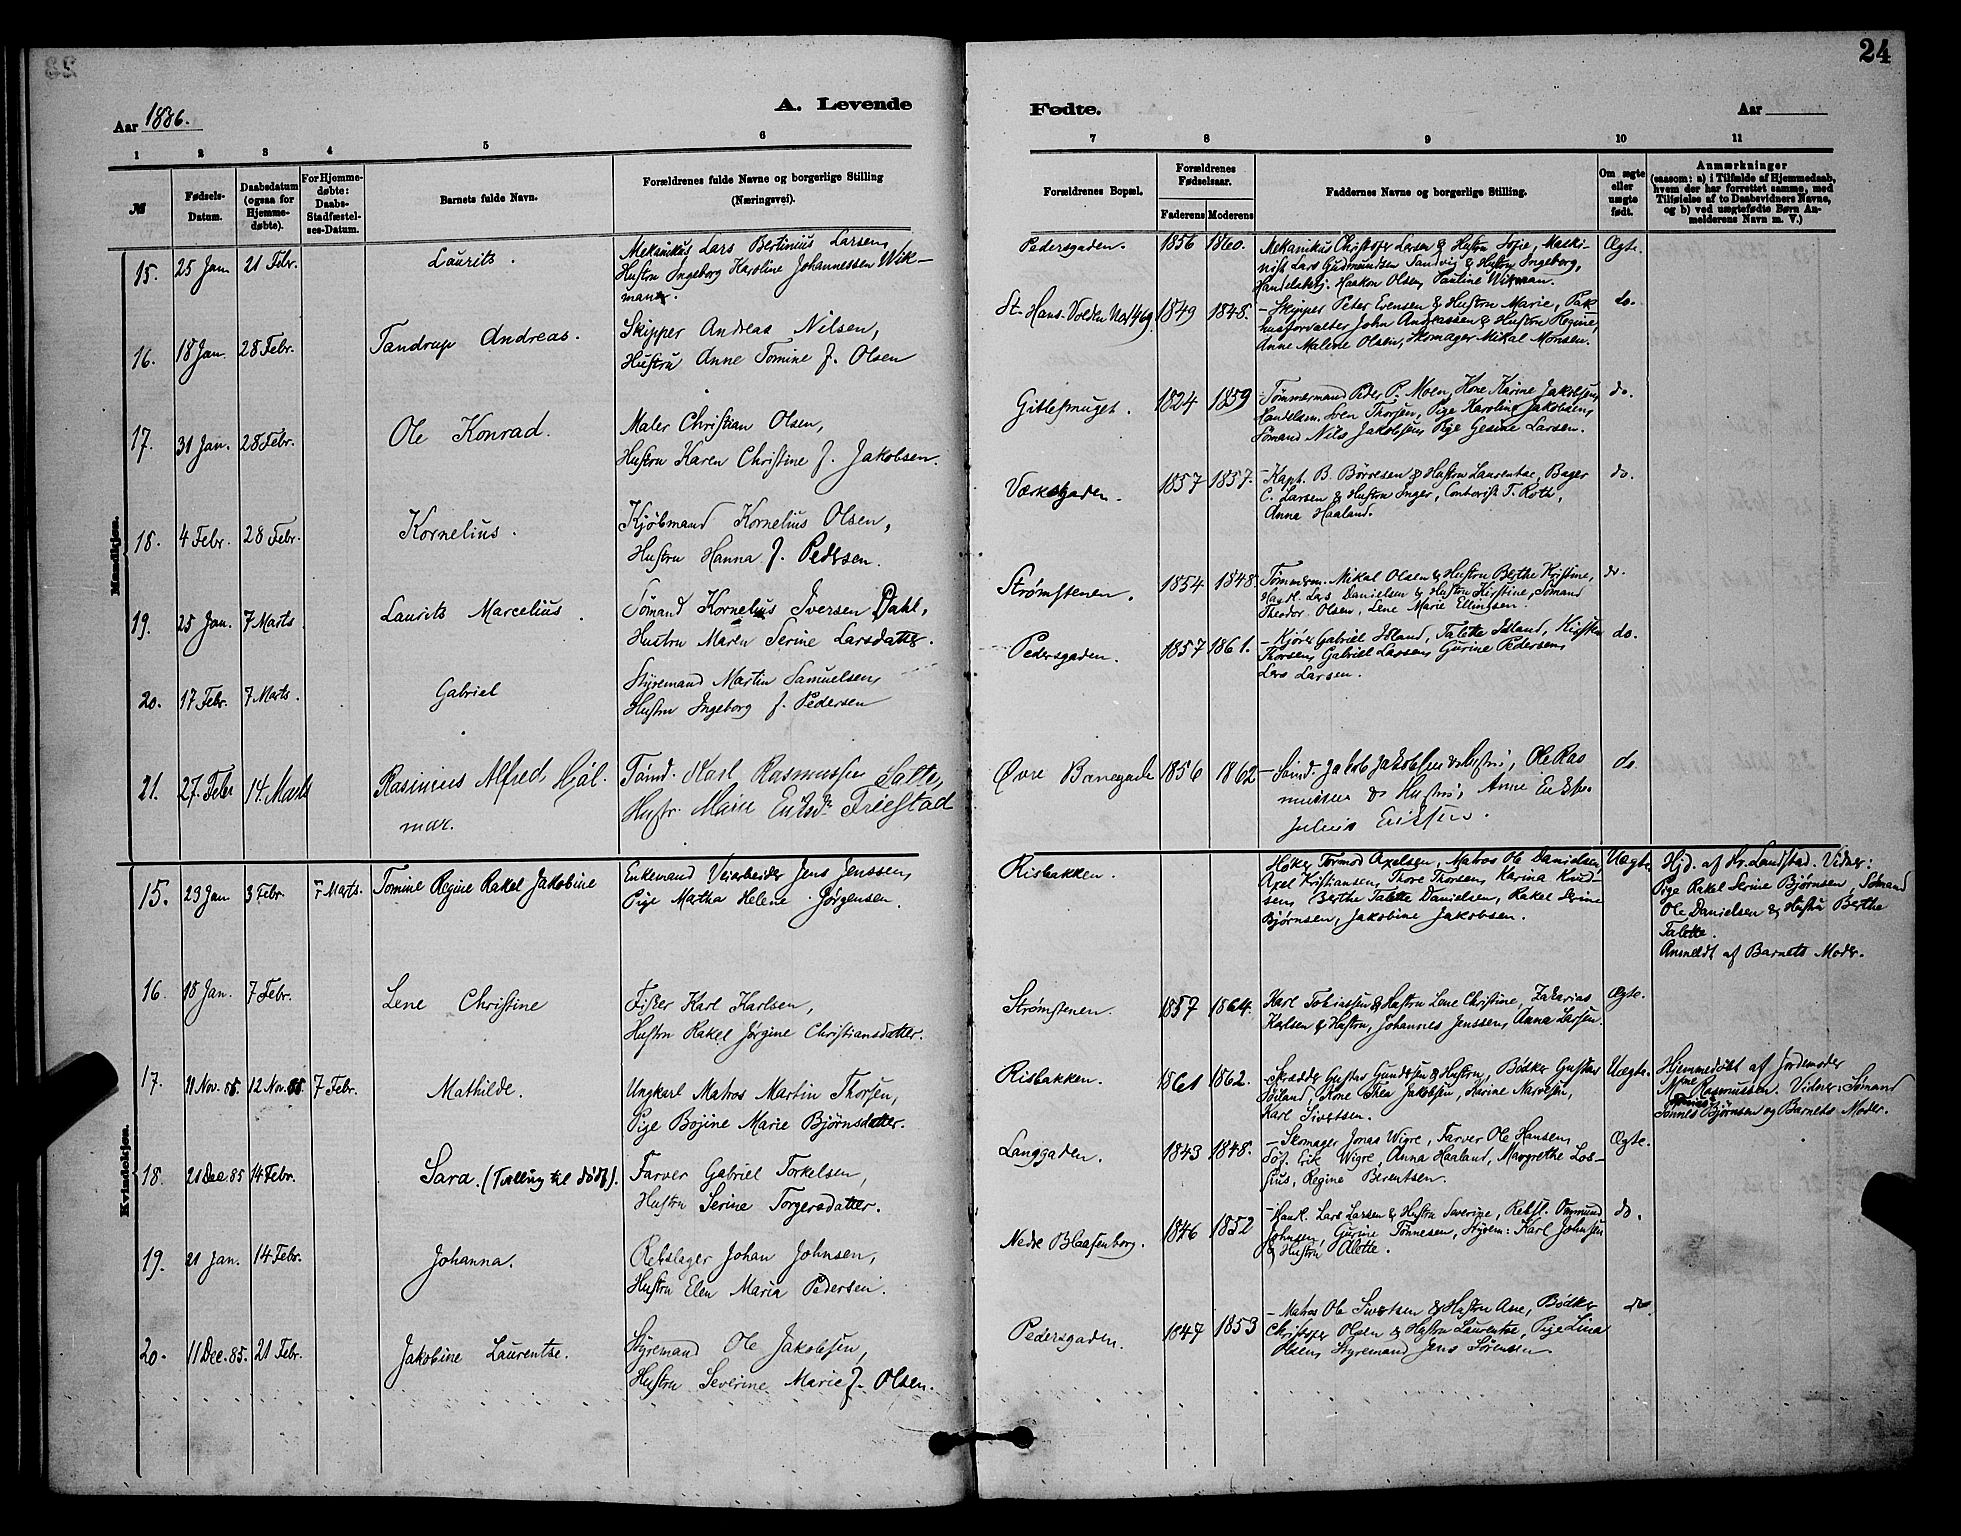 24
Aar 1886.
A. Levende
Fødte.
Aar
1 2 3 4 5 6 7 8 9 10 11
№
Fødsels-
Datum.
Daabsdatum
(ogsaa for
Hjemme-
døbte).
For Hjemme-
døbte:
Daabs-
Stadfæstel-
ses-Datum.
Barnets fulde Navn.
Forældrenes fulde Navne og borgerlige Stilling
(Næringsvei).
Forældrenes Bopæl.
Forældrenes
Fødselsaar.
Faderens Moderens
Faddernes Navne og borgerlige Stilling.
Om ægte
eller
uægte
født.
Anmærkninger
(saasom: a) i Tilfælde af Hjemmedaab,
hvem der har forrettet samme, med
Tilføielse af to Daabsvidners Navne,
og b) ved uægtefødte Børn An-
melderens Navn m. m. V.)
Mandkjøn.
15. 25 Jan. 21 Febr. Laurits.
Mekanikus Lars Bertinius Larsen,
Hustru Ingeborg Karoline Johannessen Wik-
man.
Pedersgaden. 1856 1860.
Mekanikus Christoffer Larsen & Hustru Sofie, Maski-
nist Lars Gudmundsen Sandvig & Hustru Ingeborg,
Handelsbetj. Haakon Olsen, Pauline Wikman.
Ægte.
16. 18 Jan. 28 Febr. Tandrup Andreas.
Skipper Andreas Nilsen,
Hustru Anne Tomine f. Olsen
St. Hans Volden No 1469. 1849 1848.
- Skipper Peter Evensen & Hustru Marie, Pak
husforvalter John Andreassen & Hustru Regine,
Anne Malene Olsen, Skomager Mikal Monsen.
do.
17. 31 Jan. 28 Febr. Ole Konrad.
Maler Christian Olsen,
Hustru Karen Christine f. Jakobsen.
Gitlesmuget. 1824 1859
- Tømmermand Peder P. Moen, Kone Karine Jakobsen,
Handelsm. Sven Thorsen, Pige Karoline Jakobsen,
Sømand Nils Jakobsen, Pige Gesine Larsen.
do.
18. 4 Febr. 28 Febr. Kornelius.
Kjøbmand Kornelius Olsen,
Hustru Hanna f. Pedersen.
Værksgaden. 1857 1857.
- Kapt. B. Børresen & Hustru Laurentze, Bager
C. Larsen & Hustru Inger, Contorist T. Roth,
Anna Haaland.
do.
19. 25 Jan. 7 Marts. Laurits Marcelius.
Sømand Kornelius Iversen Dahl,
Hustru Maren Serine Larsdatter.
Strømstenen. 1854 1848
Tømmerm. Mikal Olsen & Hustru Berthe Kristine,
Handl. Lars Danielsen & Hustru Kirstine, Sømand
Theodor Olsen, Lene Marie Ellingsen.
do.
20. 17 Febr. 7 Marts. Gabriel
Styremand Martin Samuelsen,
Hustru Ingeborg f. Pedersen
Pedersgaden. 1857 1861.
- Kjører Gabriel Idland, Talette Idland, Kirsten
Thorsen, Gabriel Larsen, Gurine Pedersen,
Lars Larsen.
do.
21. 27. Febr 14. Marts Rasinius Alfred Hjal-
mar.
Tømd. Karl Rasmussen Salte,
Hustr. Marie Eriksdr. Friestad
Øvre Banegade 1856 1862
- Sømd. Jakob Jakobsen & Hustru, Ole Ras
mussen & Hustru, Anne Eriksen
Julius Eriksen.
do.
Kvindekjøn.
15. 23 Jan 3 Febr. 7 Marts. Tomine Regine Rakel Jakobine
Enkemand Veiarbeider Jens Jenssen,
Pige Martha Helene Jørgensen.
Risbakken.
Høker Tormod Axelsen, Matros Ole Danielsen,
Axel Kristiansen, Thore Thorsen, Karina Knud-
sen, Berthe Talette Danielsen, Rakel Serine
Bjørnsen, Jakobine Jakobsen.
Uægte.
Hjd. af Hr. Landstad. Vidner:
Pige Rakel Serine Bjørnsen, Sømand
Ole Danielsen & Hustru Berthe
Talette.
Anmeldt af Barnets Moder.
16. 18 Jan. 7 Febr. Lene Christine
Fisker Karl Karlsen,
Hustru Rakel Jørgine Christiansdatter.
Strømstenen. 1857 1864.
Karl Tobiassen & Hustru Lene Christine, Zakarias
Karlsen & Hustru, Johannes Jenssen, Anna Larsen.
Ægte.
17. 11 Nov. 85. 12 Nov. 85 7 Febr. Mathilde.
Ungkarl Matros Martin Thorsen,
Pige Bojine Marie Bjørnsdatter.
Risbakken. 1861 1862.
- Skrædder Gustav Gundersen & Hustru, Bødker Gustav
Søiland, Kone Thea Jakobsen, Karine Narvesen,
Karl Sivertsen.
Uægte.
Hjemmedøbt af Jordemoder
Mme Rasmussen. Vidner: Sømand
Tønnes Bjørnsen og Barnets Moder.
18. 21 Dec. 85 14 Febr. Sara. (Tvilling til dødf).
Farver Gabriel Torkelsen,
Hustru Serine Torgersdatter.
Langgaden. 1843 1848.
- Skomager Jonas Wigre, Farver Ole Hansen,
Søf. Erik Wigre, Anna Haaland, Margrethe Los-
sius, Regine Berentsen.
Ægte.
19. 21 Jan. 14 Febr. Johanna.
Rebslager Johan Johnsen,
Hustru Elen Maria Pedersen.
Nedre Blaasenborg. 1846 1852
- Handl. Lars Larsen & Hustru Severine, Rebsl. Osmund
Johnsen, Gurine Tønnesen, Styrm: Karl Johnsen
& Hustru Alette.
do.
20. 11 Dec. 85. 21 Febr. Jakobine Laurentze.
Styremand Ole Jakobsen,
Hustru Severine Marie f. Olsen.
Pedersgaden. 1847 1853
- Matros Ole Sivertsen & Hustru Ane, Bødker
Christoffer Olsen & Hustru Laurentze, Pige Lina
Olsen, Styremand Jens Sørensen.
do.